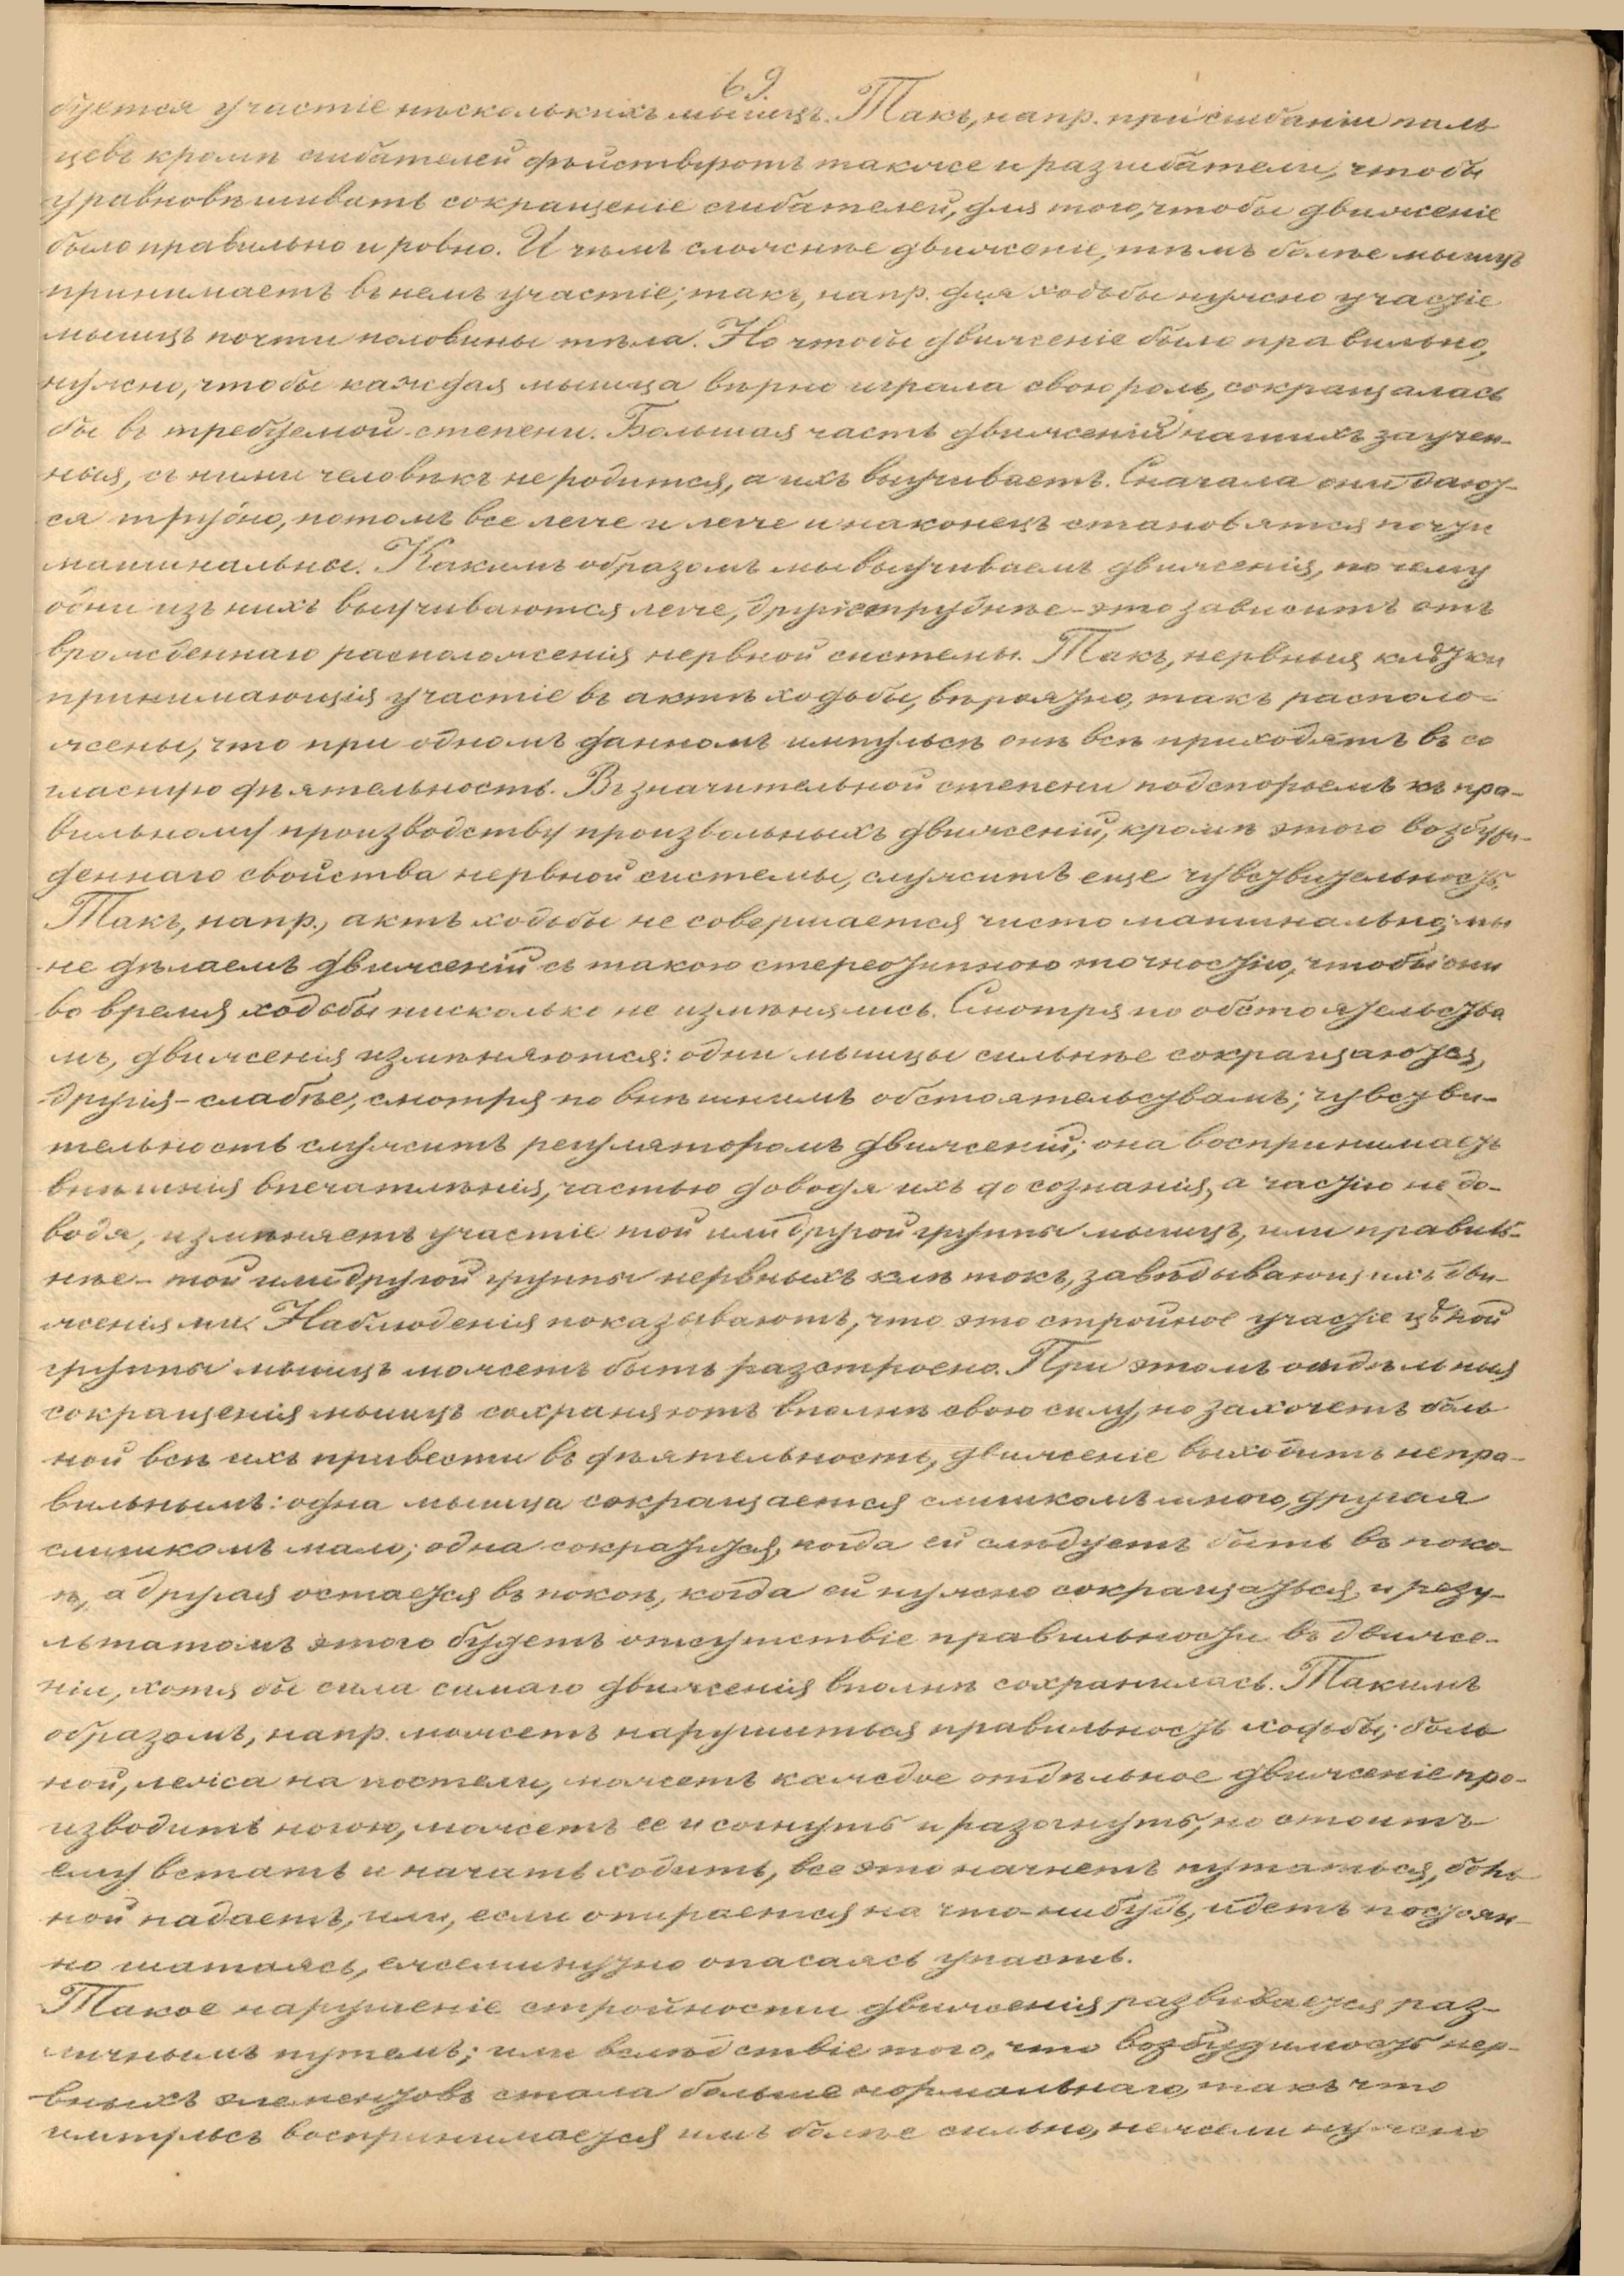 69.
буется участіе нѣсколькихъ мышцъ. Такъ, напр. при сгибаніи паль
цевъ кромѣ сгибателей дѣйствуютъ также и разгибатели, чтобы
уравновѣшивать сокращеніе сгибателей, для того, чтобы движеніе
было правильно и ровно. И чѣмъ сложнѣе движеніе, тѣмъ болѣе мышцъ
принимаетъ въ немъ участіе; такъ, напр. для ходьбы нужно участіе
мышцъ почти половины тѣла. Но чтобы движеніе было правильно,
нужно, чтобы каждая мышца вѣрно играла свою роль, сокращалась
бы въ требуемой степени. Большая часть движеній нашихъ заучен-
ныя, съ ними человѣкъ не родится, а ихъ выучиваетъ. Сначала они дают-
ся трудно, потомъ все легче и легче и наконецъ становятся почти
машинальны. Какимъ образомъ мы выучиваемъ движенія, почему
одни изъ нихъ выучиваются легче, другіе труднѣе – это зависитъ отъ
врожденнаго расположенія нервной системы. Такъ, нервныя клѣтки
принимающія участіе въ актѣ ходьбы, вѣроятно, такъ располо-
жены, что при одномъ данномъ импульсѣ онѣ всѣ приходятъ въ со
гласную дѣятельность. Въ значительной степени подспорьемъ къ пра-
вильному производству произвольныхъ движеній, кромѣ этого
деннаго свойства нервной системы, служитъ еще чувствительность.
Такъ, напр., актъ ходьбы не совершается чисто машинально; мы
не дѣлаемъ движеній съ такою стереотипною точностію, чтобы они
во время ходьбы нисколько не измѣнялись. Смотря по обстоятельства
мъ, движенія измѣняются: одни мышцы сильнѣе сокращаются,
другія – слабѣе, смотря по внѣшнимъ обстоятельствамъ; чувстви-
тельность служитъ регуляторомъ движеній; она воспринимаетъ
внѣшнія впечатлѣнія, частью доводя ихъ до сознанія, а частію не до-
водя, измѣняетъ участіе той или другой группы мышцъ, или правиль-
нѣе – той или другой группы нервныхъ клѣтокъ, завѣдывающихъ дви-
женіями. Наблюденія показываютъ, что это стройное участіе цѣлой
группы мышцъ можетъ быть разстроено. При этомъ отдѣльныя
сокращенія мышцъ сохраняютъ вполнѣ свою силу, но захочетъ боль
ной всѣ ихъ привести въ дѣятельность, движеніе выходитъ непра-
вильнымъ: одна мышца сокращается слишкомъ много, другая
слишкомъ мало; одна сократится, когда ей слѣдуетъ быть въ поко-
ѣ, а другая остается въ покоѣ, когда ей нужно сокращаться, и резу-
льтатомъ этого будетъ отсутствіе правильности въ движе-
ніи, хотя бы сила самаго движенія вполнѣ сохранилась. Такимъ
образомъ, напр. можетъ нарушиться правильность ходьбы; боль
ной, лежа на постели, можетъ каждое отдѣльное движеніе про-
изводить ногою, можетъ ее и согнуть и разогнуть, но стоитъ
ему встать и начать ходить, все это начнетъ путаться, боль-
ной падаетъ, или, если опирается на что-нибудь, идетъ постоян-
но шатаясь, ежеминутно опасаясь упасть.
Такое нарушеніе стройности движенія развивается раз-
личнымъ путемъ; или вслѣдствіе того, что возбудимость нер-
вныхъ элементовъ стала больше нормальнаго, такъ что
импульсъ воспринимается имъ болѣе сильно, нежели нужно